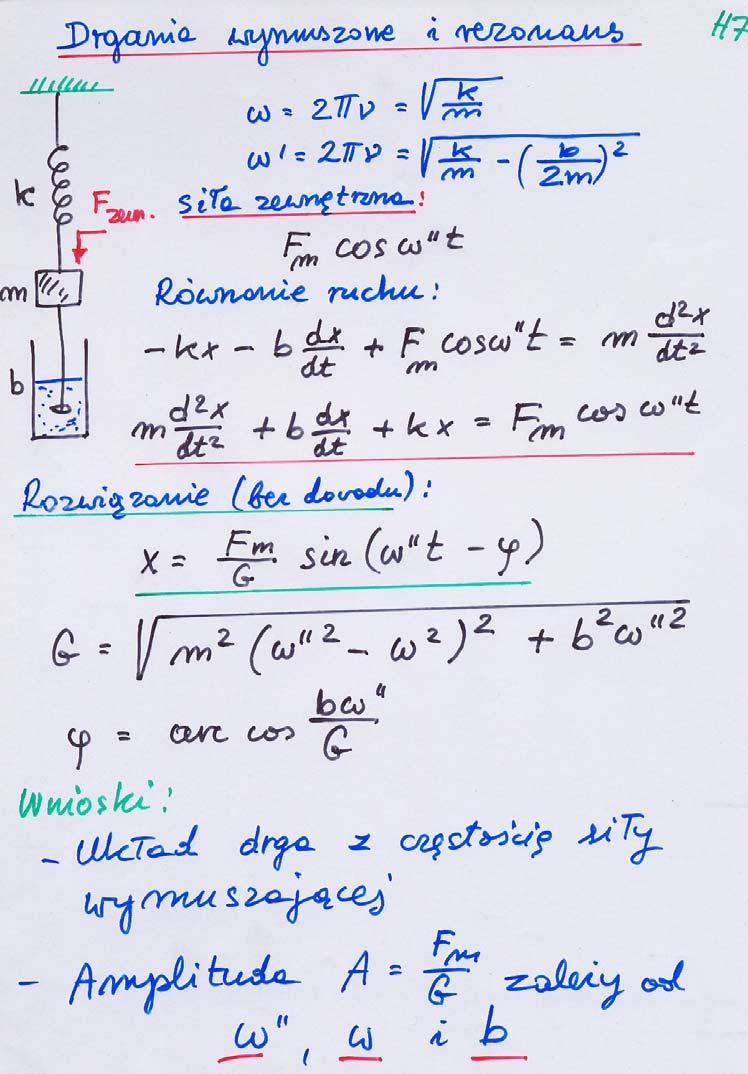 Drgania wymuszone i rezonans
H7
ω = 2πν = √(k/m)
ω' = 2πν = √(k/m - (b/2m)²)
k
F zewn.
siła zewnętrzna:
F_m cos ω"t
m
Równanie ruchu:
-kx - b dx/dt + F_m cos ω"t = m d²x/dt²
b
m d²x/dt² + b dx/dt + kx = F_m cos ω"t
Rozwiązanie (bez dowodu):
x = F_m/G sin (ω"t - φ)
G = √(m² (ω"² - ω²)² + b²ω"²)
φ = arc cos bω"/G
Wnioski:
- Układ drga z częstością siły
wymuszającej
- Amplituda A = F_m/G zależy od
ω", ω i b